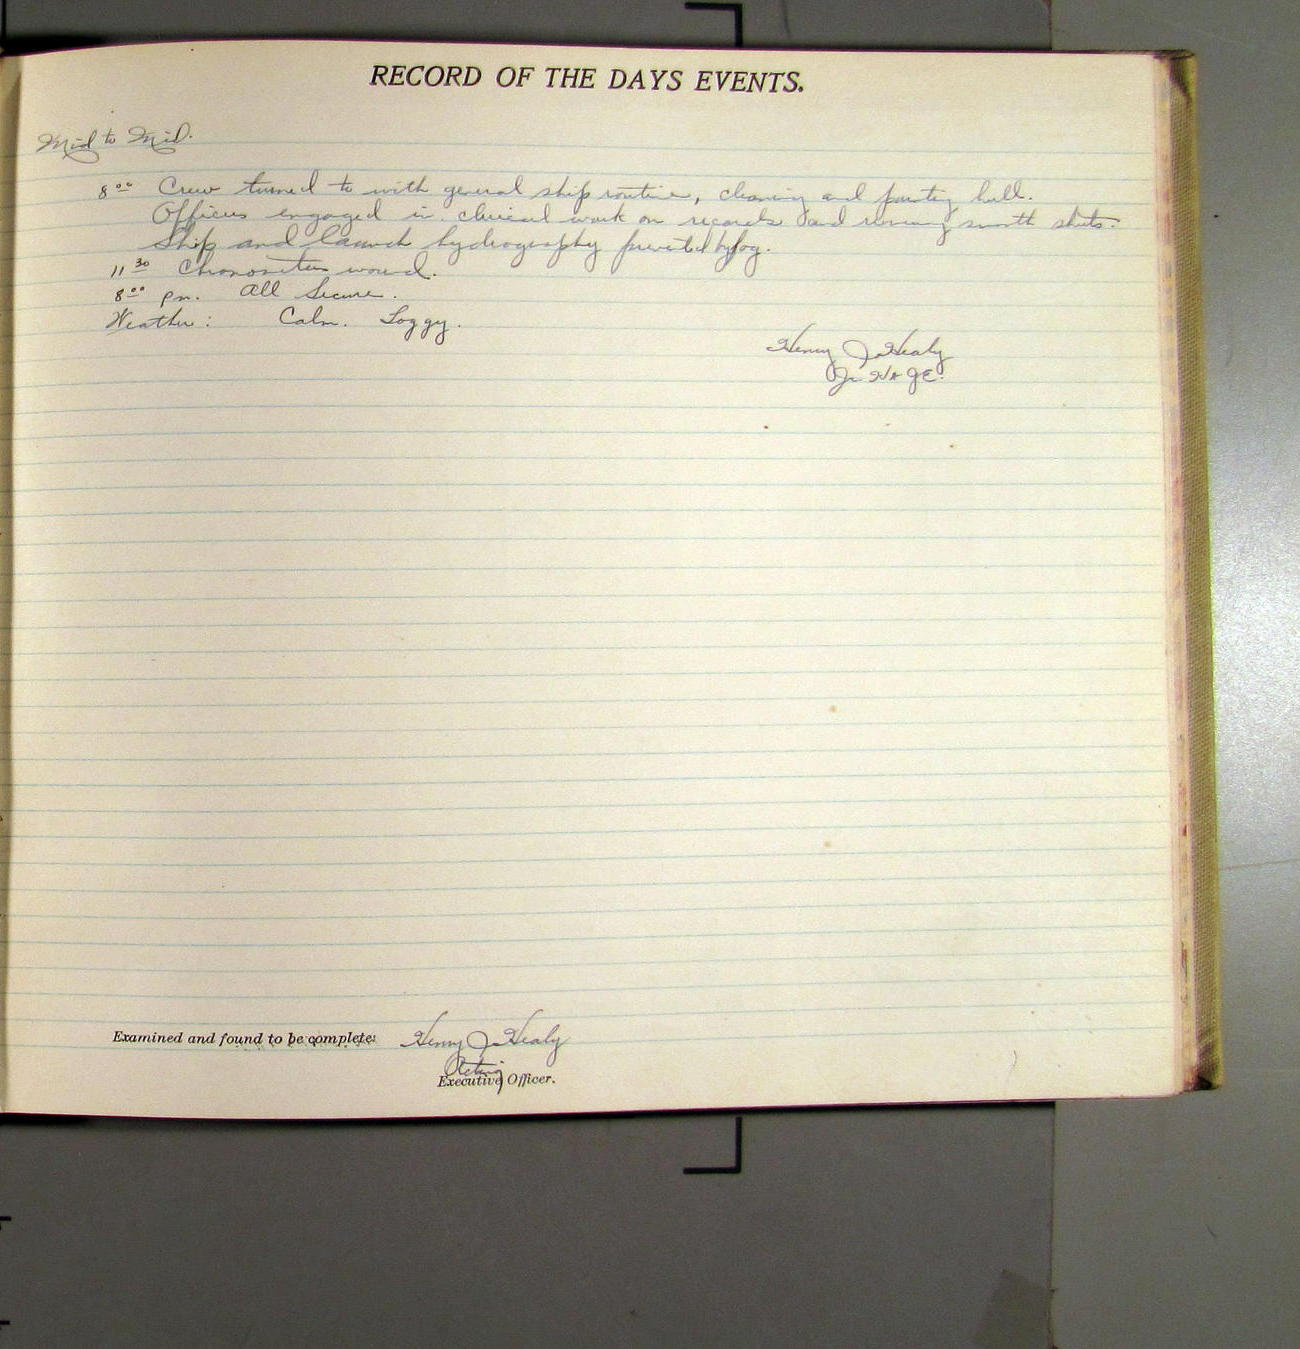 RECORD OF THE DAYS EVENTS.
Mid to Mid.
8 00 Crew turned to with general ship routine, cleaning and painting hull.
Officers engaged in clerical work on records and running smooth sheets.
Ship and launch hydrography prevented by fog.
11 30 Chronometers wound.
8 00 pm. All Secure.
Weather: Calm. Foggy.
Henry J. Healy
Jr. H & G E.
Examined and found to be complete:
Henry J. Healy
Acting
Executive Officer.